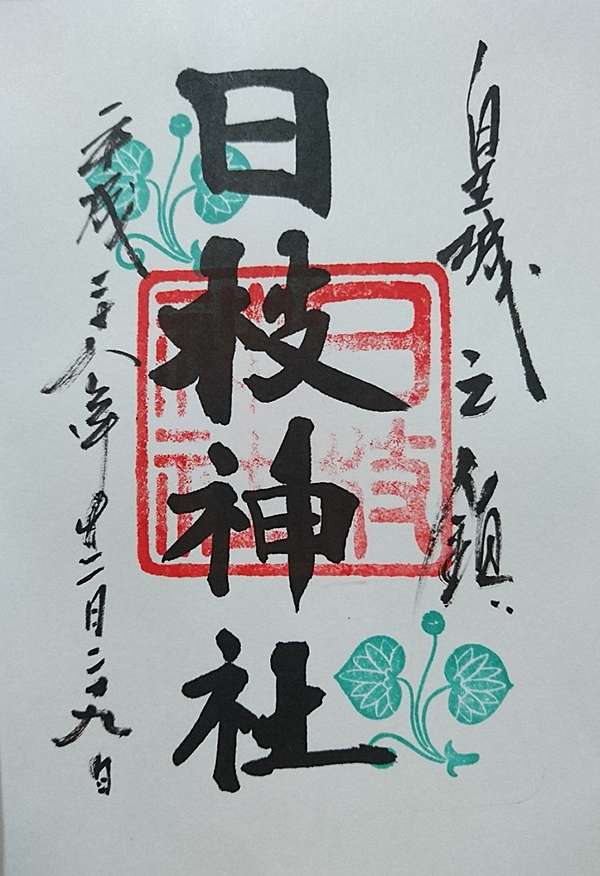 皇城之鎮
日枝神社
日枝神社
平成二十八年十二月二十九日